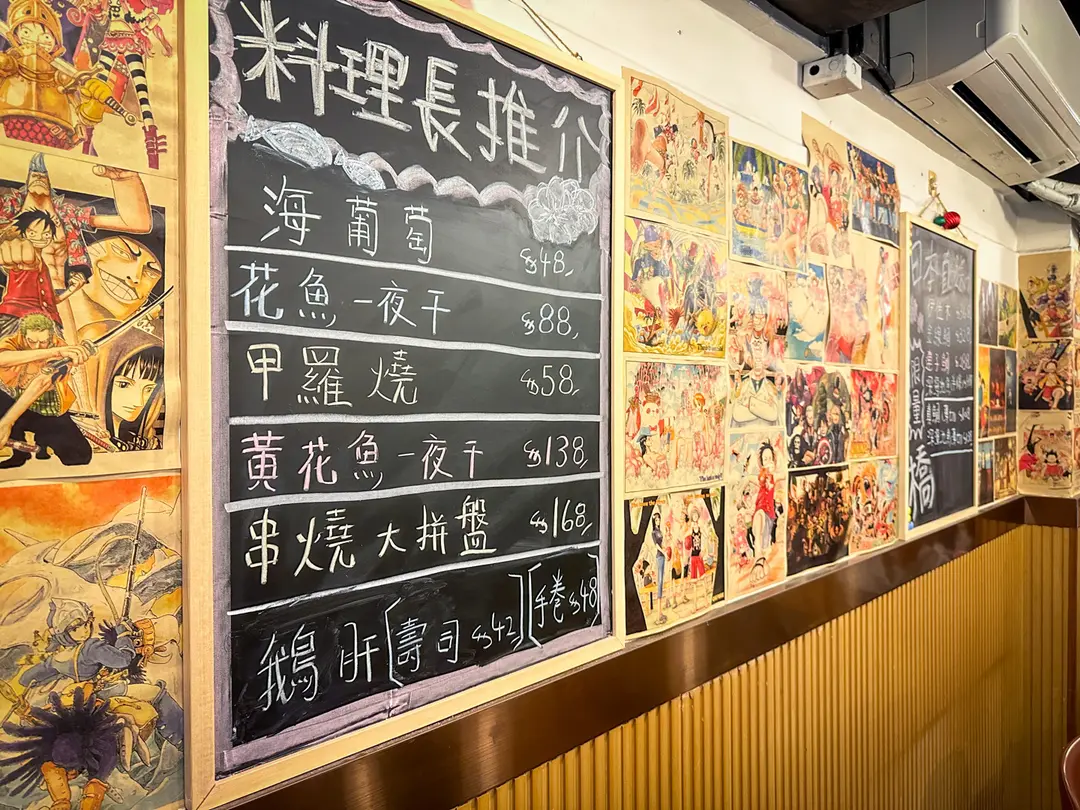 料理長推介
海葡萄 $48,
花魚一夜干 $88,
甲羅燒 $58,
黃花魚一夜干 $138,
串燒大拼盤 $168,
鵝肝[壽司 $42][手卷 $48]
日本直
限量